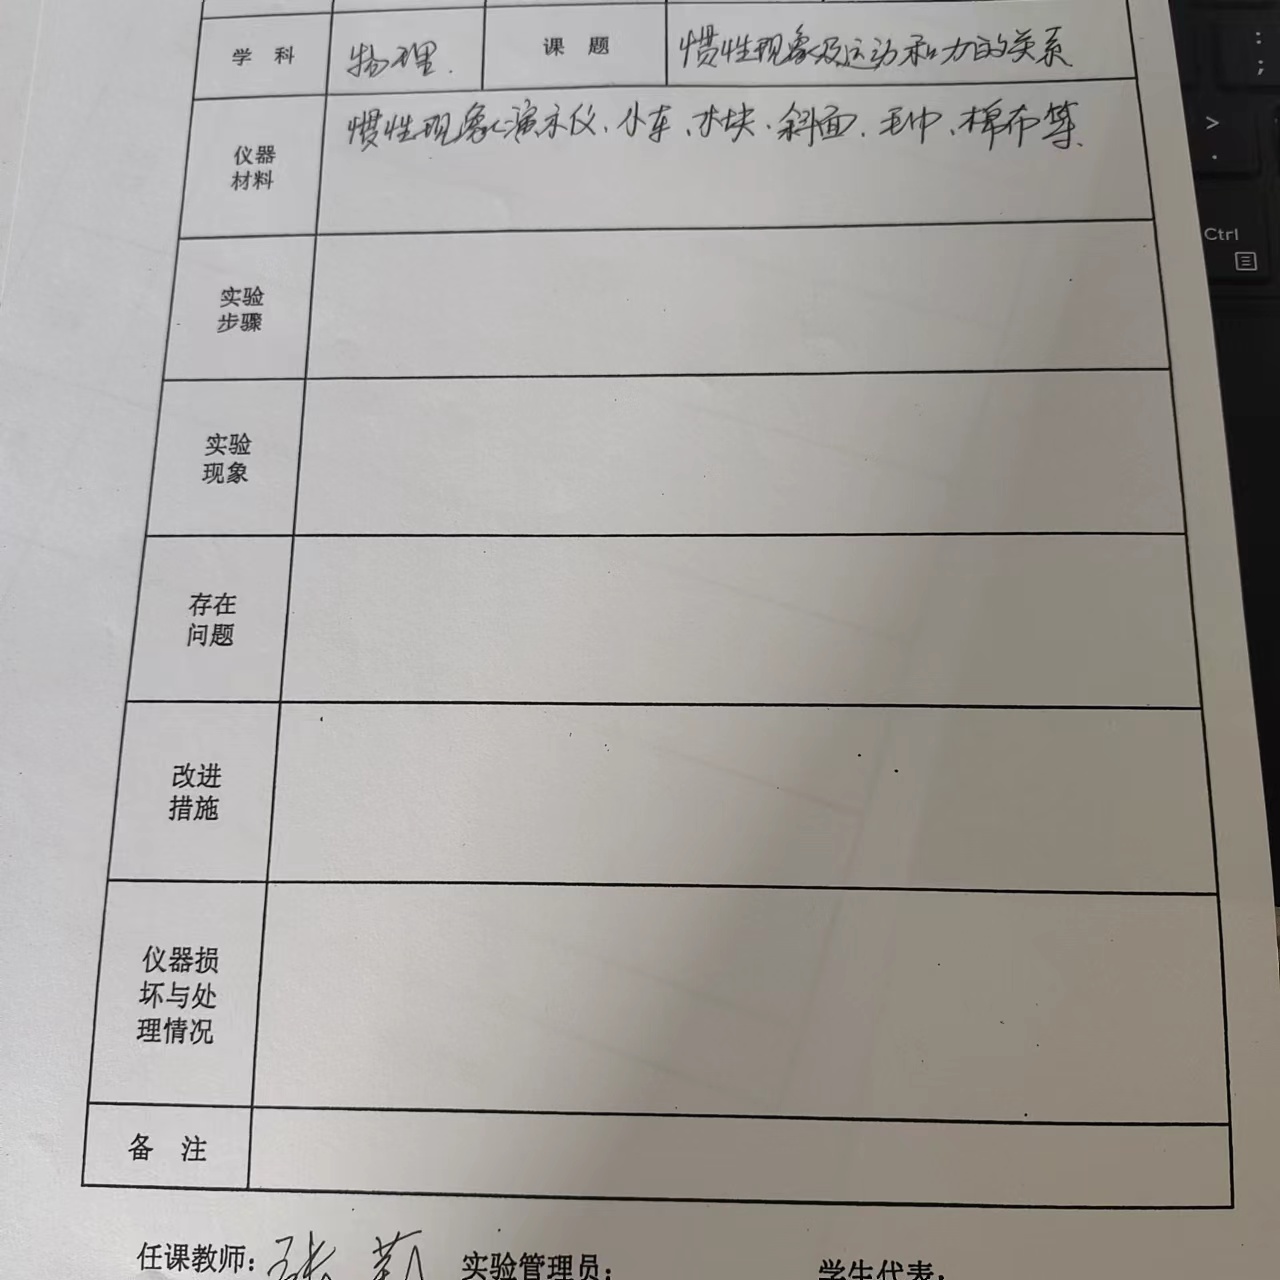 学 科 物理. 课 题 惯性现象及运动和力的关系.
仪器材料 惯性现象演示仪、小车、木块、斜面、毛巾、棉布等.
实验步骤
实验现象
存在问题
改进措施
仪器损坏与处理情况
备 注
任课教师: 实验管理员: 学生代表:
>
.
:
;
Ctrl